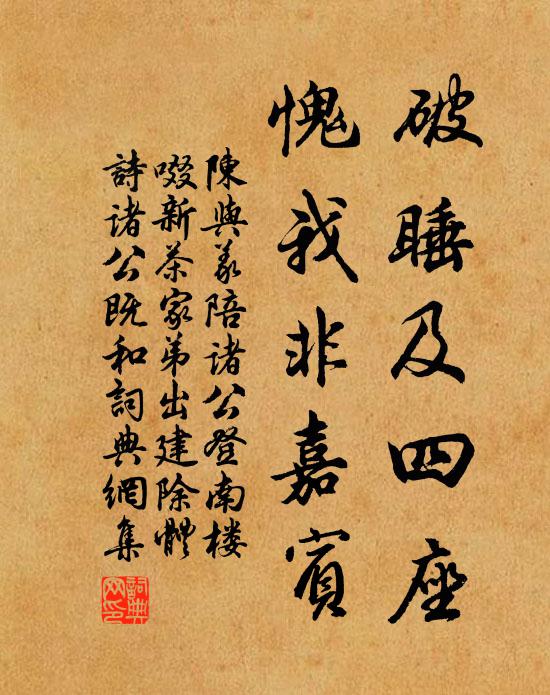 破睡及四座
愧我非嘉賓
陳與義陪诸公登南楼
啜新茶家弟出建除體
詩诸公既和詞典網集
詞典网印